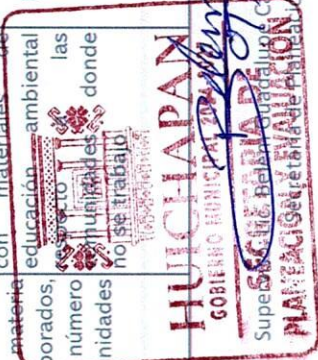 con materiales de
materia educación ambiental
borados, respecto a las
número comunidades donde
nidades no se trabajo
HUICHAPAN
GOBIERNO MUNICIPAL
SECRETARIA DE
PLANEACIÓN Y EVALUACIÓN
Super
Lic. Belén Guadalupe C
Secretaria de Planeació